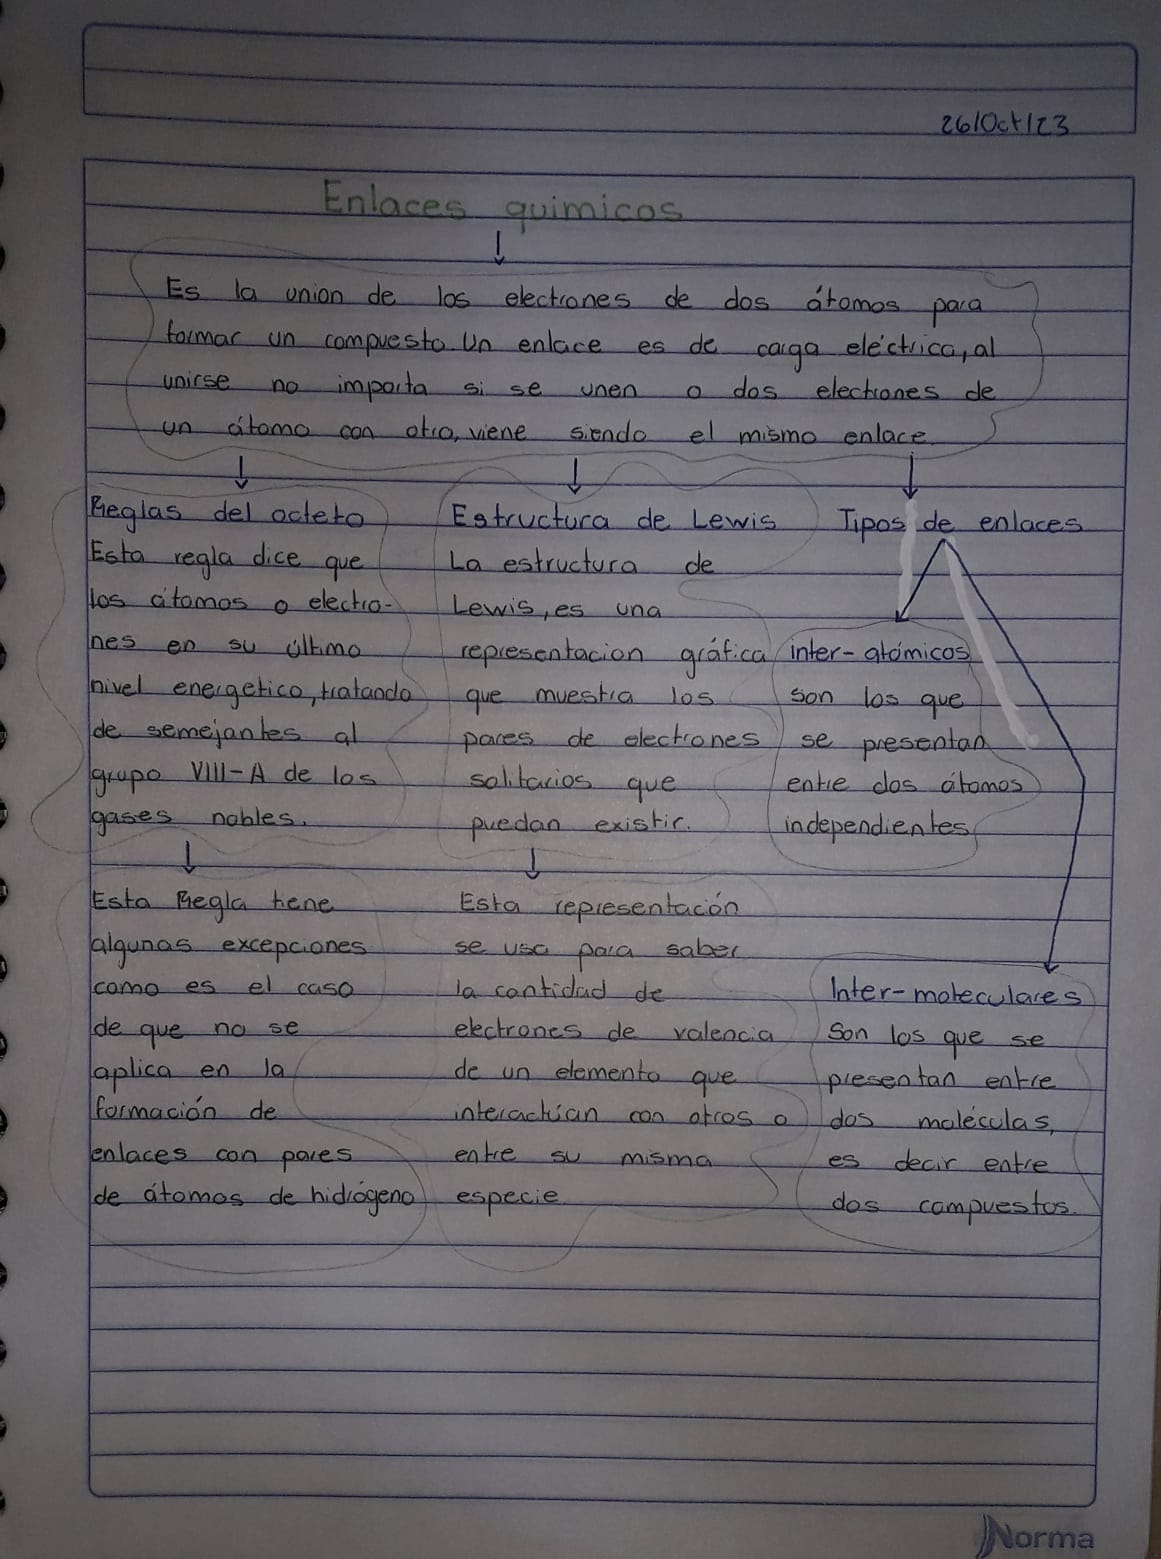 26/Oct/23
Enlaces quimicos
Es la union de los electrones de dos átomos para
formar un compuesto. Un enlace es de carga eléctrica, al
unirse no importa si se unen o dos electrones de
un átomo con otro, viene siendo el mismo enlace
Reglas del octeto
Esta regla dice que
los átomos o electro-
nes en su último
nivel energetico, tratando
de semejantes al
grupo VIII-A de los
gases nobles.
Esta Regla tiene
algunas excepciones
como es el caso
de que no se
aplica en la
formación de
enlaces con pares
de átomos de hidrógeno
Estructura de Lewis
La estructura de
Lewis, es una
representacion gráfica
que muestra los
pares de electrones
solitarios que
puedan existir.
Esta representación
se usa para saber
la cantidad de
electrones de valencia
de un elemento que
interactúan con otros o
entre su misma
especie
Tipos de enlaces
inter-atómicos
son los que
se presentan
entre dos átomos
independientes
Inter-moleculares
Son los que se
presentan entre
dos moléculas,
es decir entre
dos compuestos.
Norma